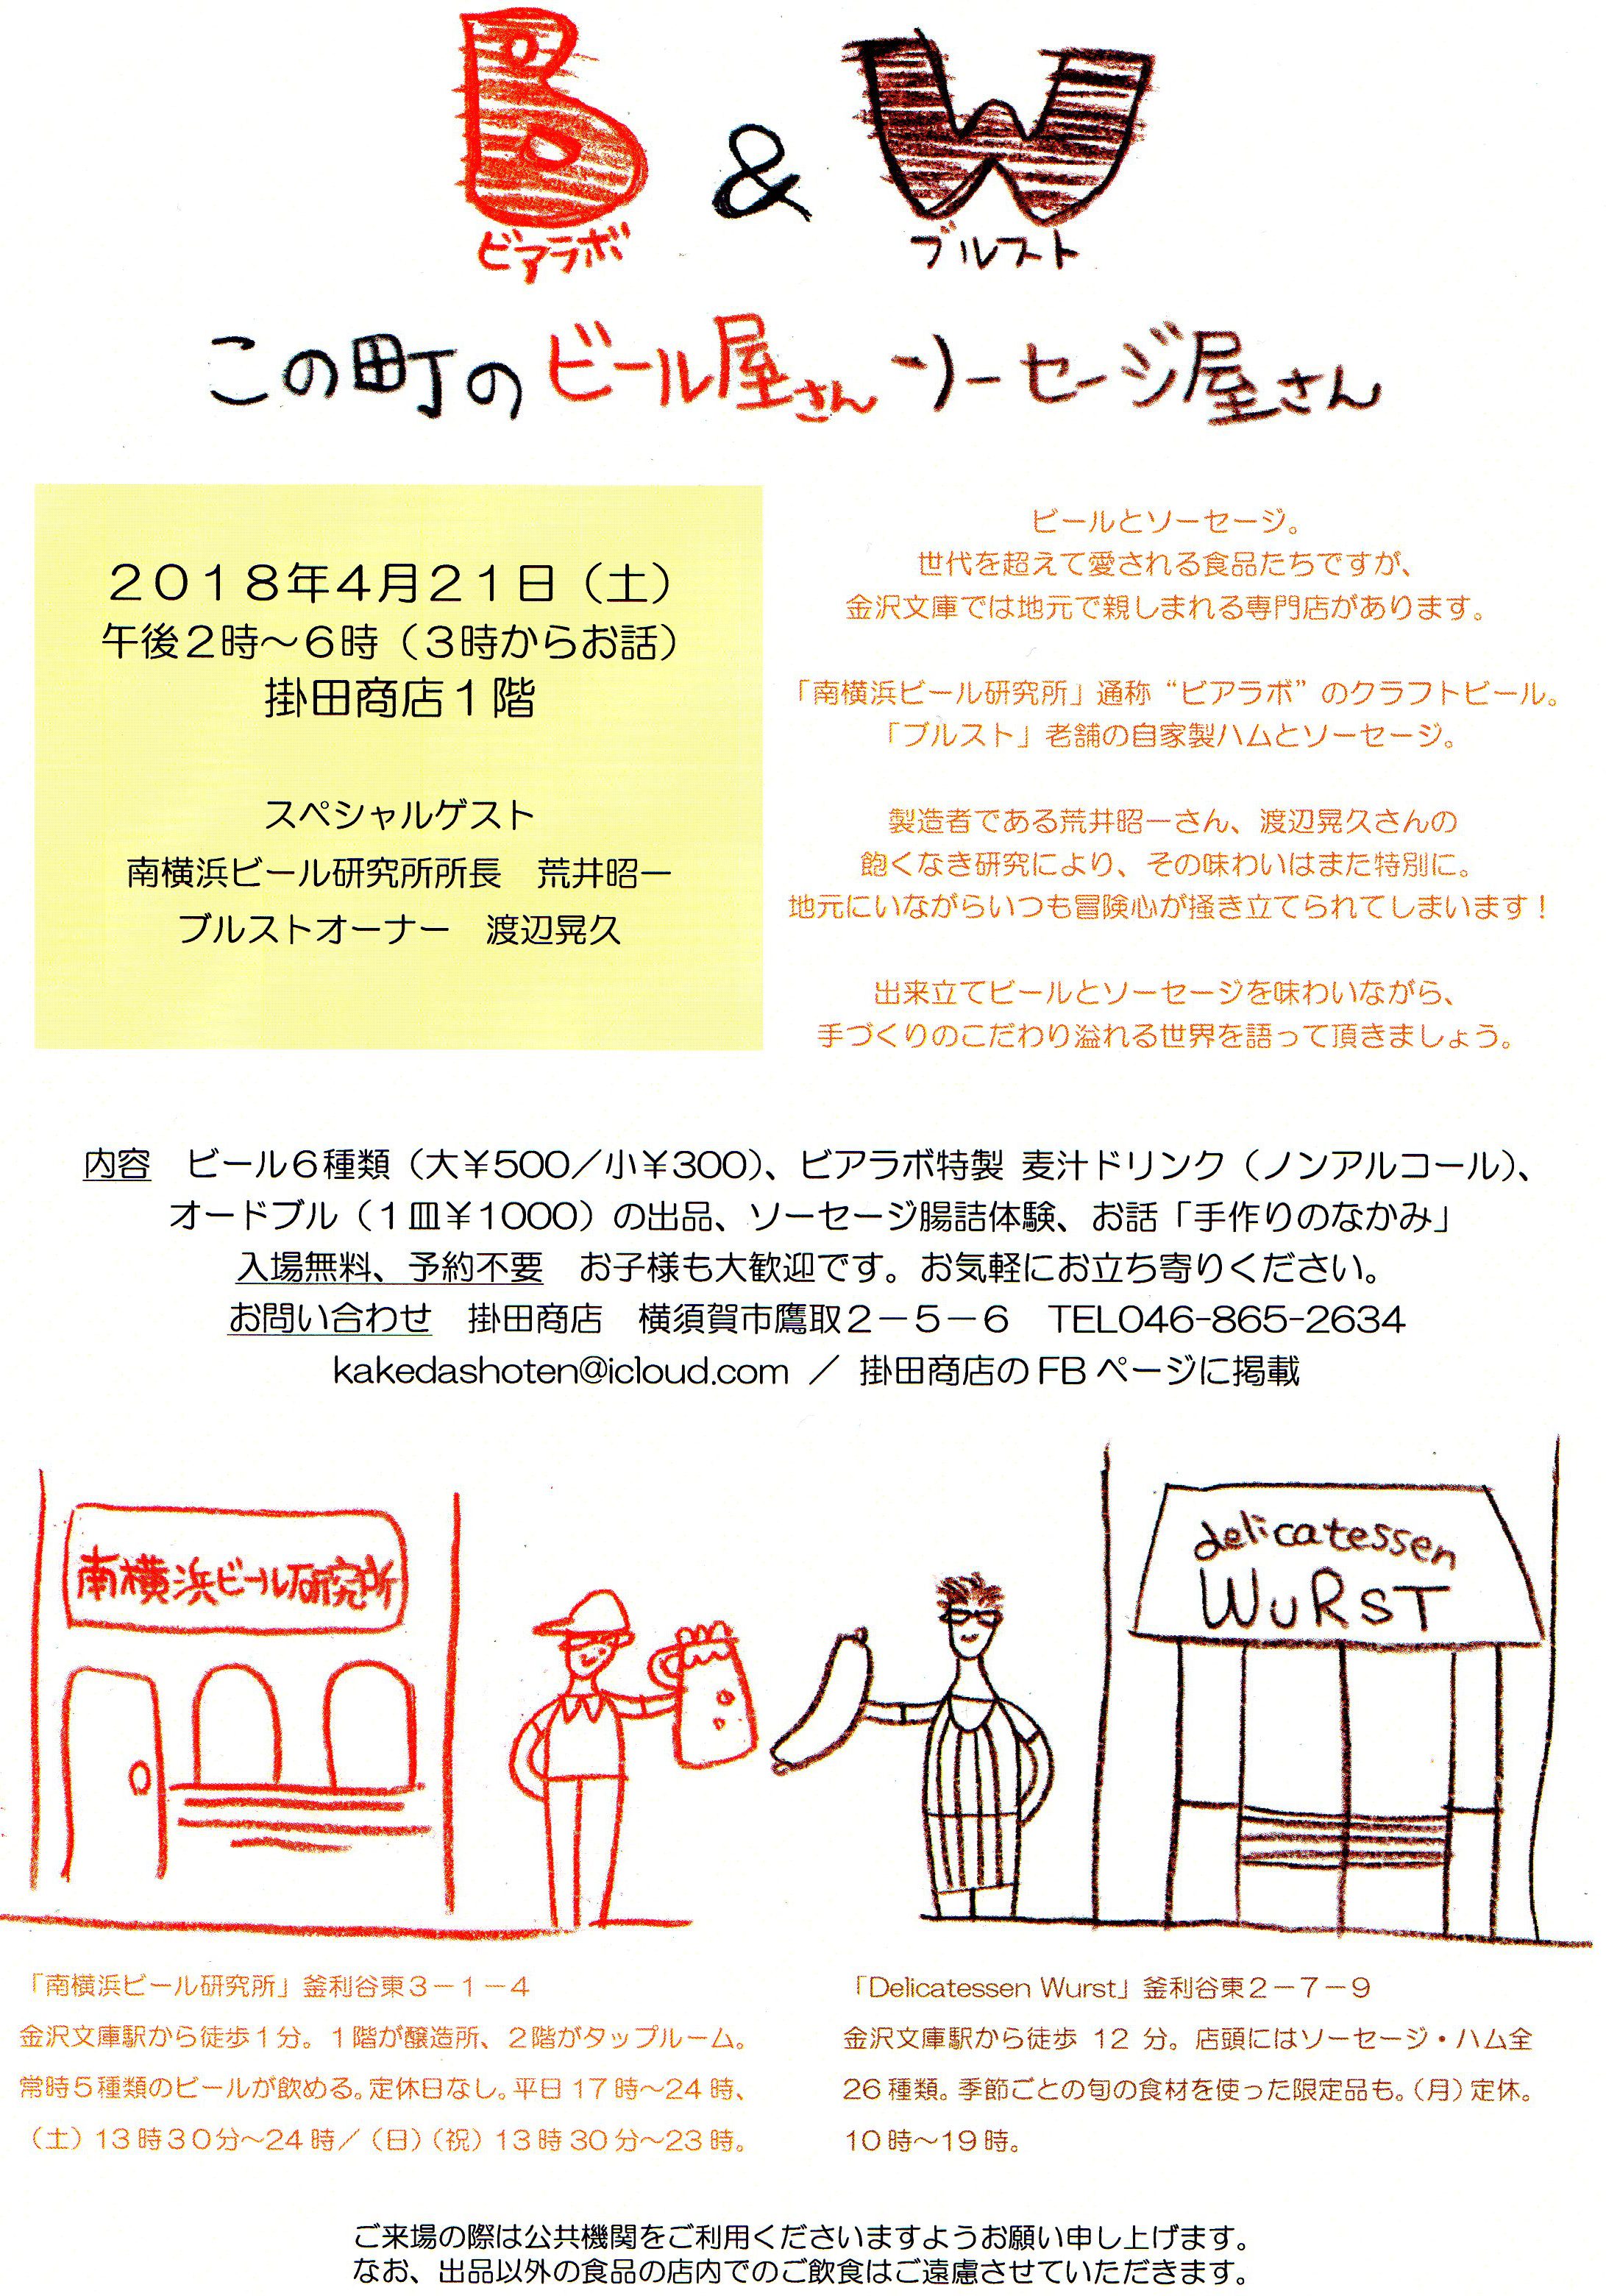 B & W
ビアラボ ブルスト
この町のビール屋さんソーセージ屋さん
2018年4月21日（土）
午後2時～6時（3時からお話）
掛田商店1階
スペシャルゲスト
南横浜ビール研究所所長　荒井昭一
ブルストオーナー　渡辺晃久
ビールとソーセージ。
世代を超えて愛される食品たちですが、
金沢文庫では地元で親しまれる専門店があります。
「南横浜ビール研究所」通称“ビアラボ”のクラフトビール。
「ブルスト」老舗の自家製ハムとソーセージ。
製造者である荒井昭一さん、渡辺晃久さんの
飽くなき研究により、その味わいはまた特別に。
地元にいながらいつも冒険心が掻き立てられてしまいます！
出来立てビールとソーセージを味わいながら、
手づくりのこだわり溢れる世界を語って頂きましょう。
内容　ビール6種類（大￥500／小￥300）、ビアラボ特製 麦汁ドリンク（ノンアルコール）、
オードブル（1皿￥1000）の出品、ソーセージ腸詰体験、お話「手作りのなかみ」
入場無料、予約不要　お子様も大歓迎です。お気軽にお立ち寄りください。
お問い合わせ　掛田商店　横須賀市鷹取2－5－6　TEL046-865-2634
kakedashoten@icloud.com ／ 掛田商店のFBページに掲載
南横浜ビール研究所
delicatessen
WURST
「南横浜ビール研究所」釜利谷東3－1－4
金沢文庫駅から徒歩1分。1階が醸造所、2階がタップルーム。
常時5種類のビールが飲める。定休日なし。平日17時～24時、
（土）13時30分～24時／（日）（祝）13時30分～23時。
「Delicatessen Wurst」釜利谷東2－7－9
金沢文庫駅から徒歩 12 分。店頭にはソーセージ・ハム全
26種類。季節ごとの旬の食材を使った限定品も。（月）定休。
10時～19時。
ご来場の際は公共機関をご利用くださいますようお願い申し上げます。
なお、出品以外の食品の店内でのご飲食はご遠慮させていただきます。